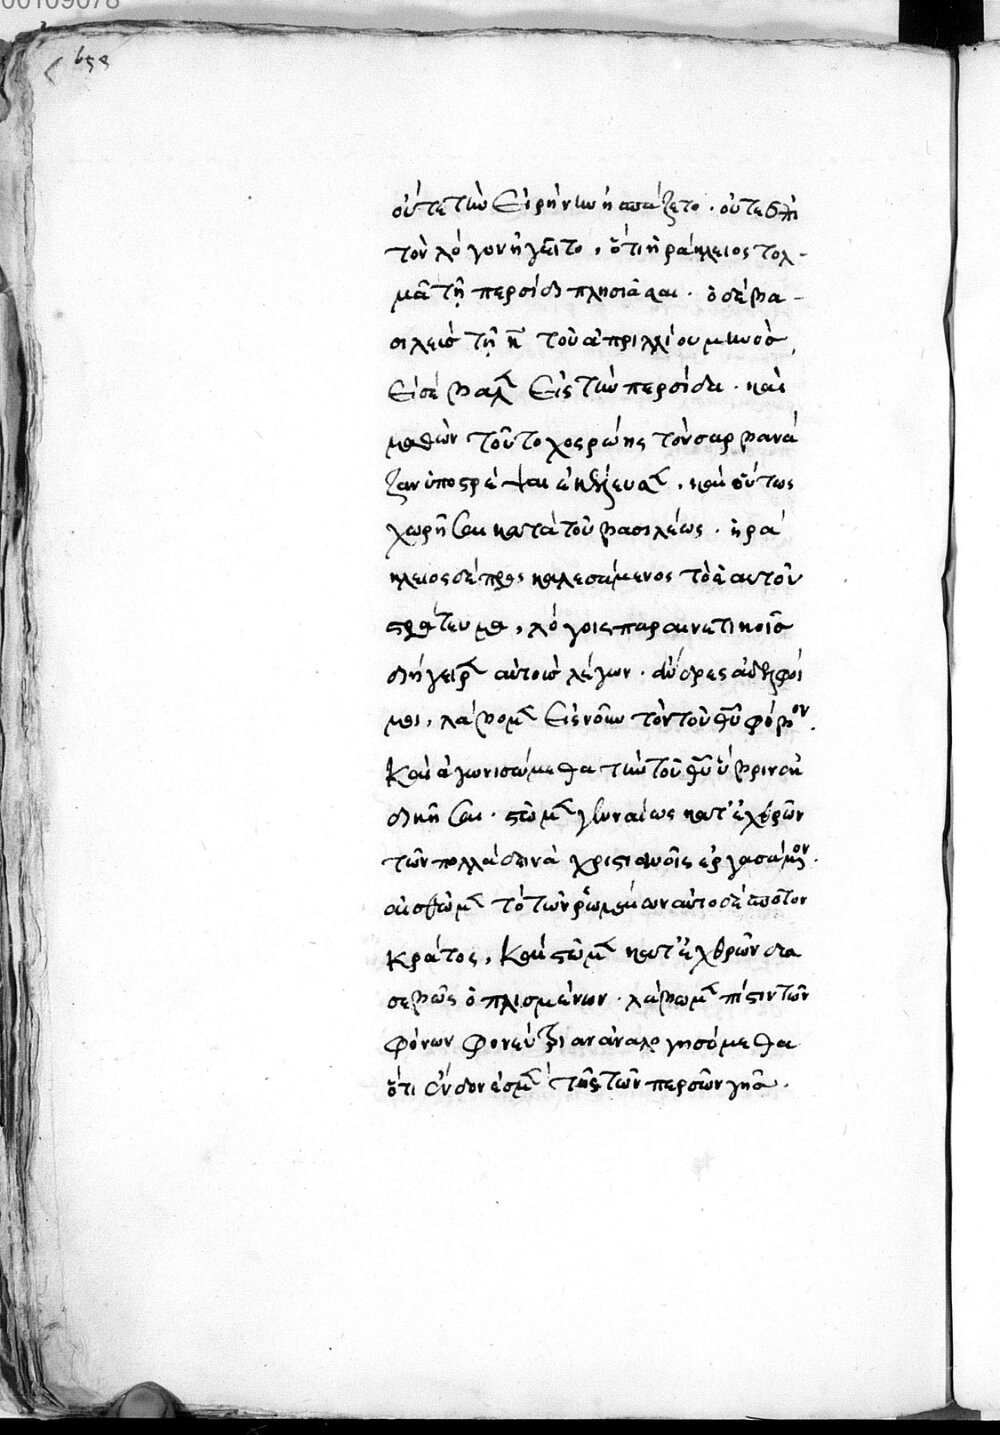 00109078
οὔτε τὴν εἰρήνην ἠσπάζετο. οὔτε ἐπὶ
τὸν λόγον ἡγεῖτο, ὅτι ἡράκλειος τολ-
μᾶ τῇ περσίδι πλησιάσαι. ὁ δὲ βα-
σιλεὺς τῇ κ̄ τοῦ ἀπριλλίου μηνὸς,
εἰσέβαλ εἰς τὴν περσίδα. καὶ
μαθὼν τοῦτο χοσρώης τὸν σαρβανά
ζαν ὑποστρέψαι ἐκέλευσ, καὶ οὕτως
χωρῆσαι κατὰ τοῦ βασιλέως. ἡρά
κλειος δὲ προσκαλεσάμενος τὸ ἑαυτοῦ
στράτευμα, λόγοις παραινετικοῖς
διήγειρ αὐτοὺς λέγων. ἄνδρες ἀδελφοί
μοι, λάβομ εἰς νοῦν τὸν τοῦ θῦ φόβον.
Καὶ ἀγωνισώμεθα τὴν τοῦ θῦ ὕβριν ἐκ
δικῆσαι. στῶμ γενναίως κατ' ἐχθρῶν
τῶν πολλὰ δεινὰ χριστιανοῖς ἐργασαμον.
αἰσθῶμ τὸ τῶν ῥωμαίων αὐτοδέσποτον
κράτος, Καὶ στῶμ κατ' ἐχθρῶν δυσ
σεβῶς ὁπλισμένων. λάβωμ πίστιν τῶν
φόνων φονεύτριαν ἀναλογησόμεθα
ὅτι ἔνδον ἐσμ τῆς τῶν περσῶν γῆς.